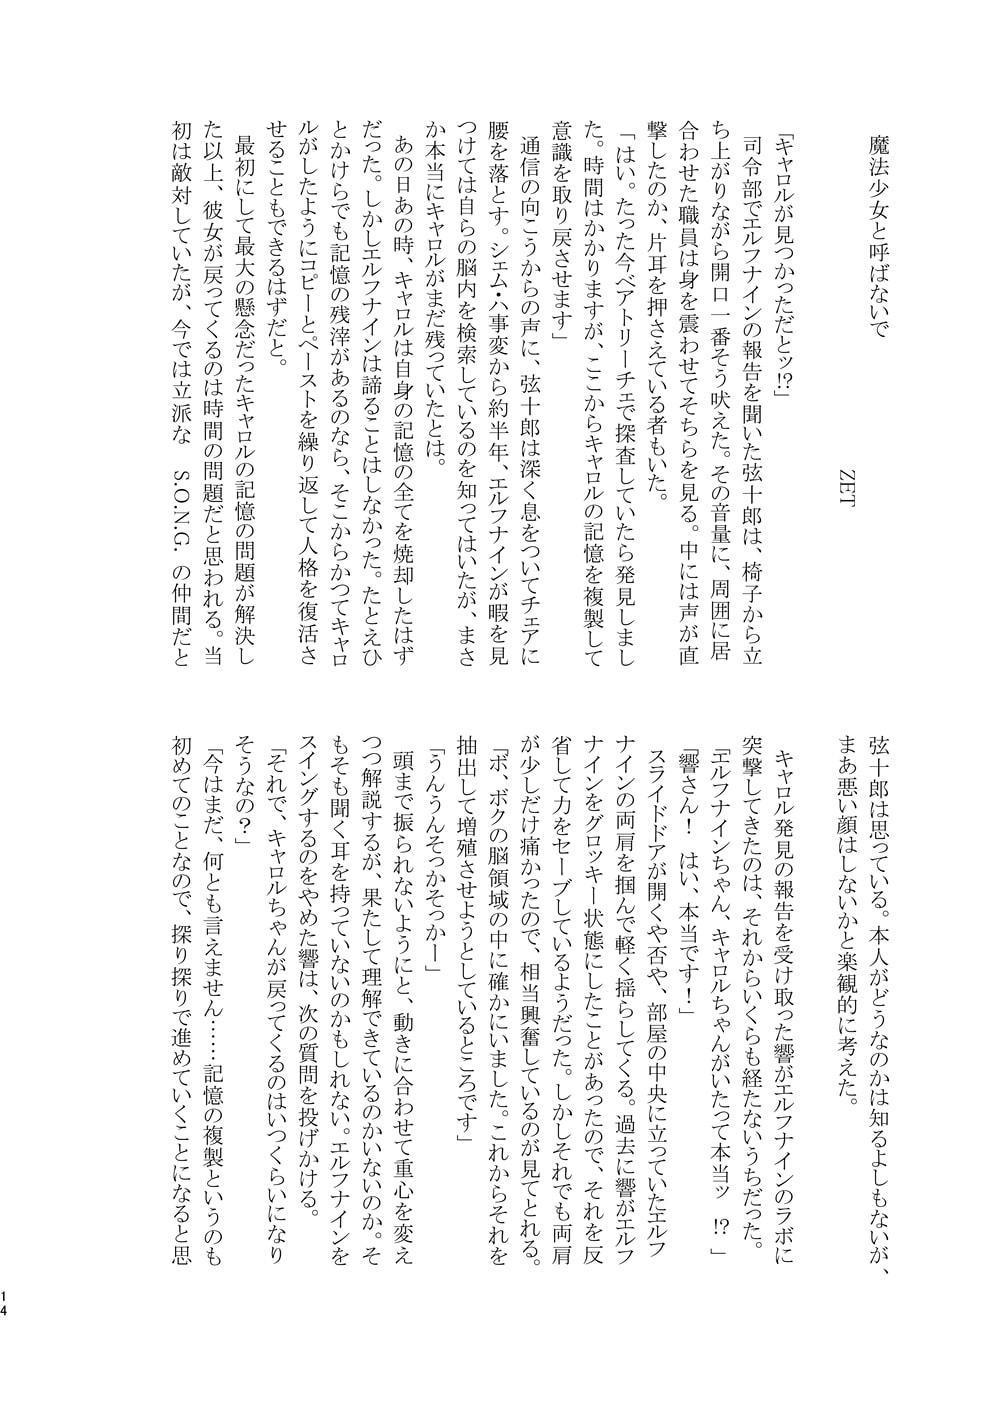 魔法少女と呼ばないで
ZET
「キャロルが見つかっただとッ!?」
　司令部でエルフナインの報告を聞いた弦十郎は、椅子から立
ち上がりながら開口一番そう吠えた。その音量に、周囲に居
合わせた職員は身を震わせてそちらを見る。中には声が直
撃したのか、片耳を押さえている者もいた。
「はい。たった今ベアトリーチェで探査していたら発見しまし
た。時間はかかりますが、ここからキャロルの記憶を複製して
意識を取り戻させます」
　通信の向こうからの声に、弦十郎は深く息をついてチェアに
腰を落とす。シェム・ハ事変から約半年、エルフナインが暇を見
つけては自らの脳内を検索しているのを知ってはいたが、まさ
か本当にキャロルがまだ残っていたとは。
　あの日あの時、キャロルは自身の記憶の全てを焼却したはず
だった。しかしエルフナインは諦ることはしなかった。たとえひ
とかけらでも記憶の残滓があるのなら、そこからかつてキャロ
ルがしたようにコピーとペーストを繰り返して人格を復活さ
せることもできるはずだと。
　最初にして最大の懸念だったキャロルの記憶の問題が解決し
た以上、彼女が戻ってくるのは時間の問題だと思われる。当
初は敵対していたが、今では立派な　S.O.N.G. の仲間だと
弦十郎は思っている。本人がどうなのかは知るよしもないが、
まあ悪い顔はしないかと楽観的に考えた。
　キャロル発見の報告を受け取った響がエルフナインのラボに
突撃してきたのは、それからいくらも経たないうちだった。
「エルフナインちゃん、キャロルちゃんがいたって本当ッ　!?　」
「響さん！　はい、本当です！」
　スライドドアが開くや否や、部屋の中央に立っていたエルフ
ナインの両肩を掴んで軽く揺らしてくる。過去に響がエルフ
ナインをグロッキー状態にしたことがあったので、それを反
省して力をセーブしているようだった。しかしそれでも両肩
が少しだけ痛かったので、相当興奮しているのが見てとれる。
「ボ、ボクの脳領域の中に確かにいました。これからそれを
抽出して増殖させようとしているところです」
「うんうんそっかそっかー」
　頭まで振られないようにと、動きに合わせて重心を変え
つつ解説するが、果たして理解できているのかいないのか。そ
もそも聞く耳を持っていないのかもしれない。エルフナインを
スイングするのをやめた響は、次の質問を投げかける。
「それで、キャロルちゃんが戻ってくるのはいつくらいになり
そうなの？」
「今はまだ、何とも言えません……記憶の複製というのも
初めてのことなので、探り探りで進めていくことになると思
14